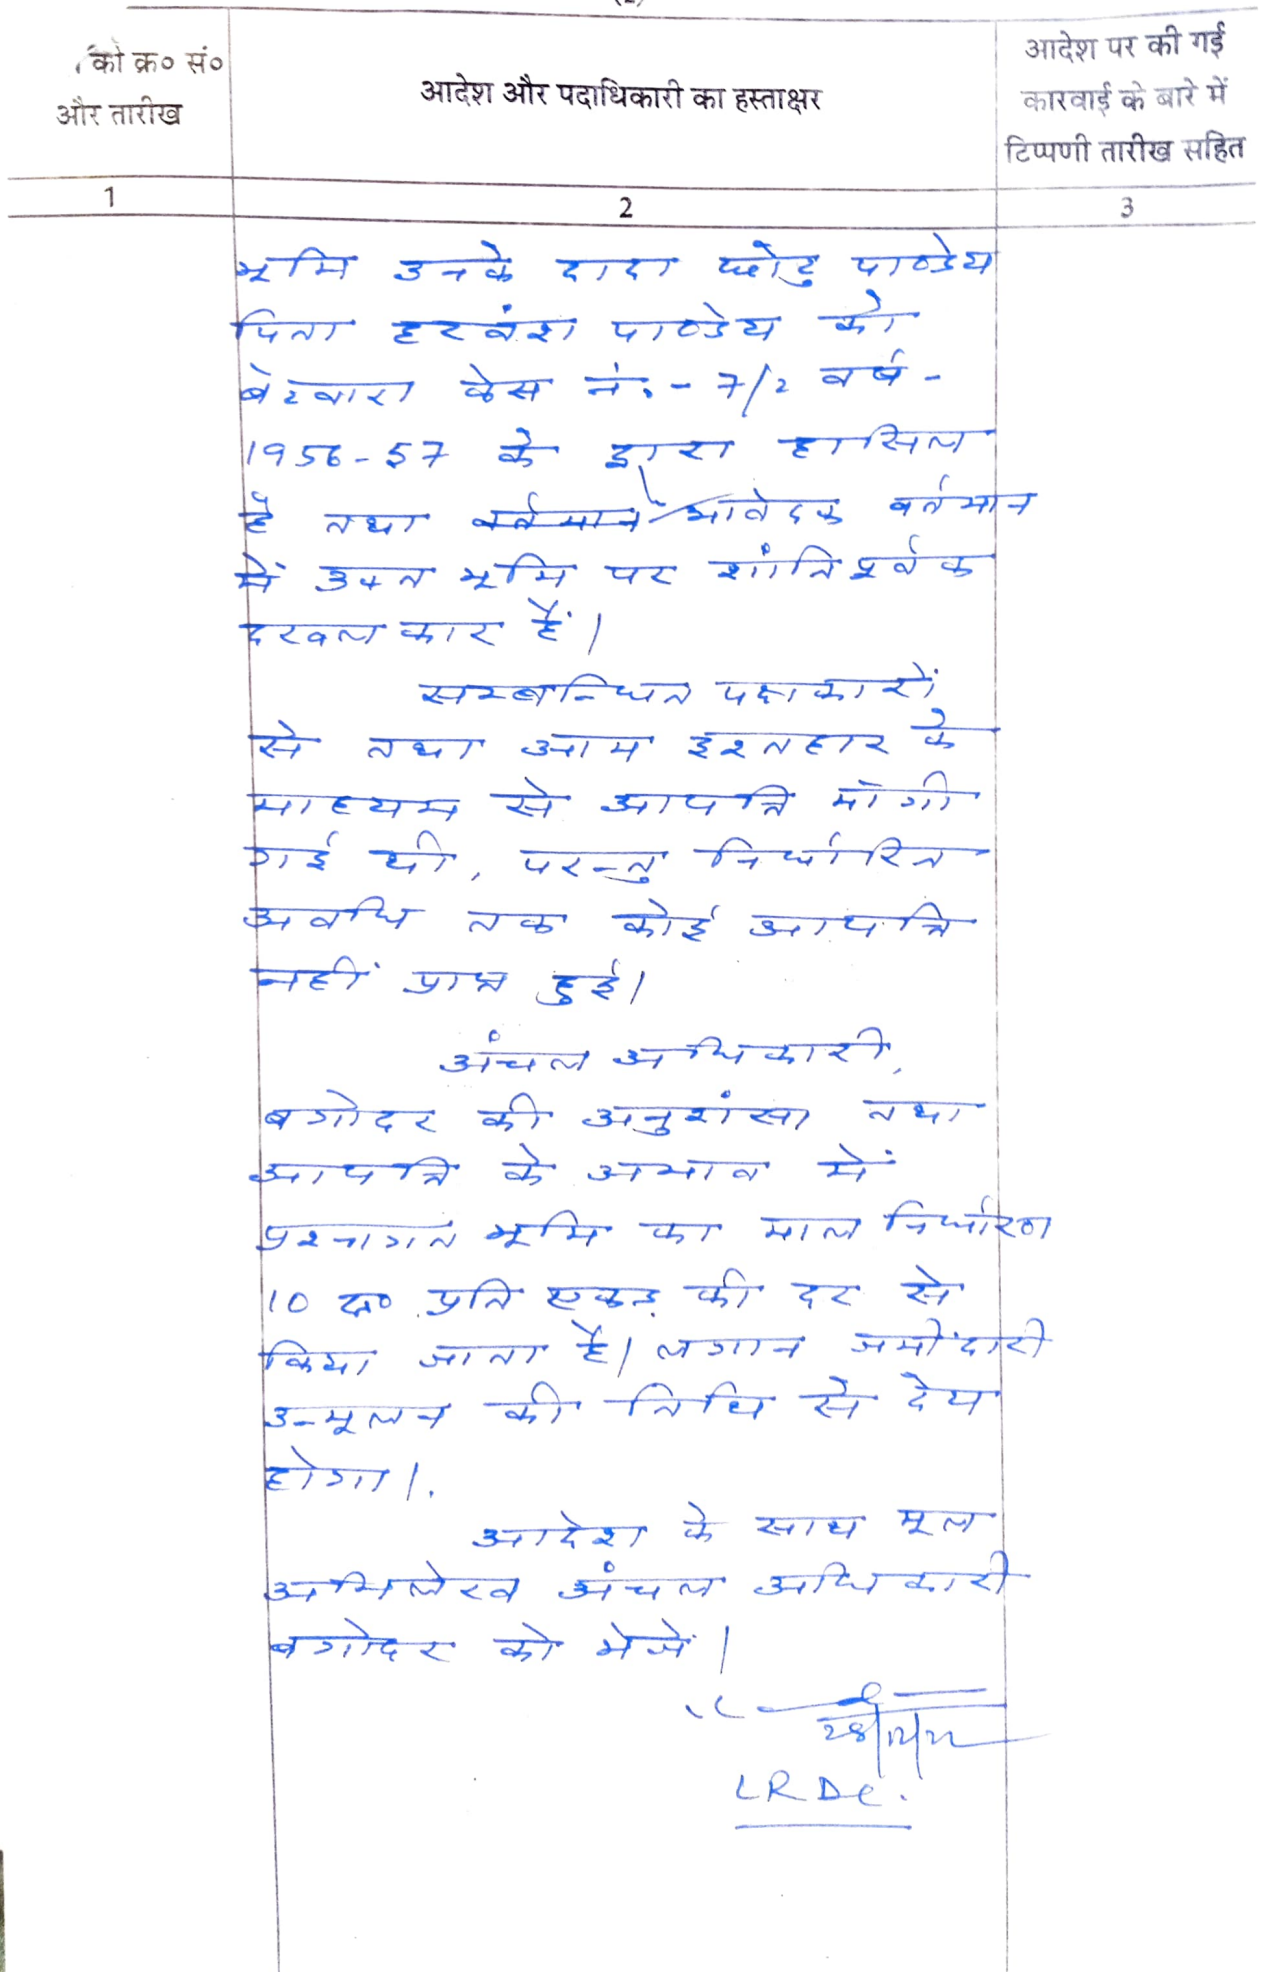 (2)
को क्र० सं०
और तारीख
आदेश और पदाधिकारी का हस्ताक्षर
आदेश पर की गई
कारवाई के बारे में
टिप्पणी तारीख सहित
1
2
3
भूमि उनके दादा छोटु पाण्डेय
पिता हरवंश पाण्डेय को
बंटवारा केस नं०-7/2 वर्ष-
1956-57 के द्वारा हासिल
है तथा वर्तमान आवेदक वर्तमान
में उक्त भूमि पर शांतिपूर्वक
दखलकार हैं।
सम्बन्धित पक्षकारों
से तथा आम इश्तहार के
माध्यम से आपत्ति माँगी
गई थी, परन्तु निर्धारित
अवधि तक कोई आपत्ति
नहीं प्राप्त हुई।
अंचल अधिकारी,
बगोदर की अनुशंसा तथा
आपत्ति के अभाव में
प्रश्नागत भूमि का माल निर्धारण
10 रू० प्रति एकड़ की दर से
किया जाता है। लगान जमींदारी
उन्मूलन की तिथि से देय
होगा।
आदेश के साथ मूल
अभिलेख अंचल अधिकारी
बगोदर को भेजें।
28/12/22
LRDC.